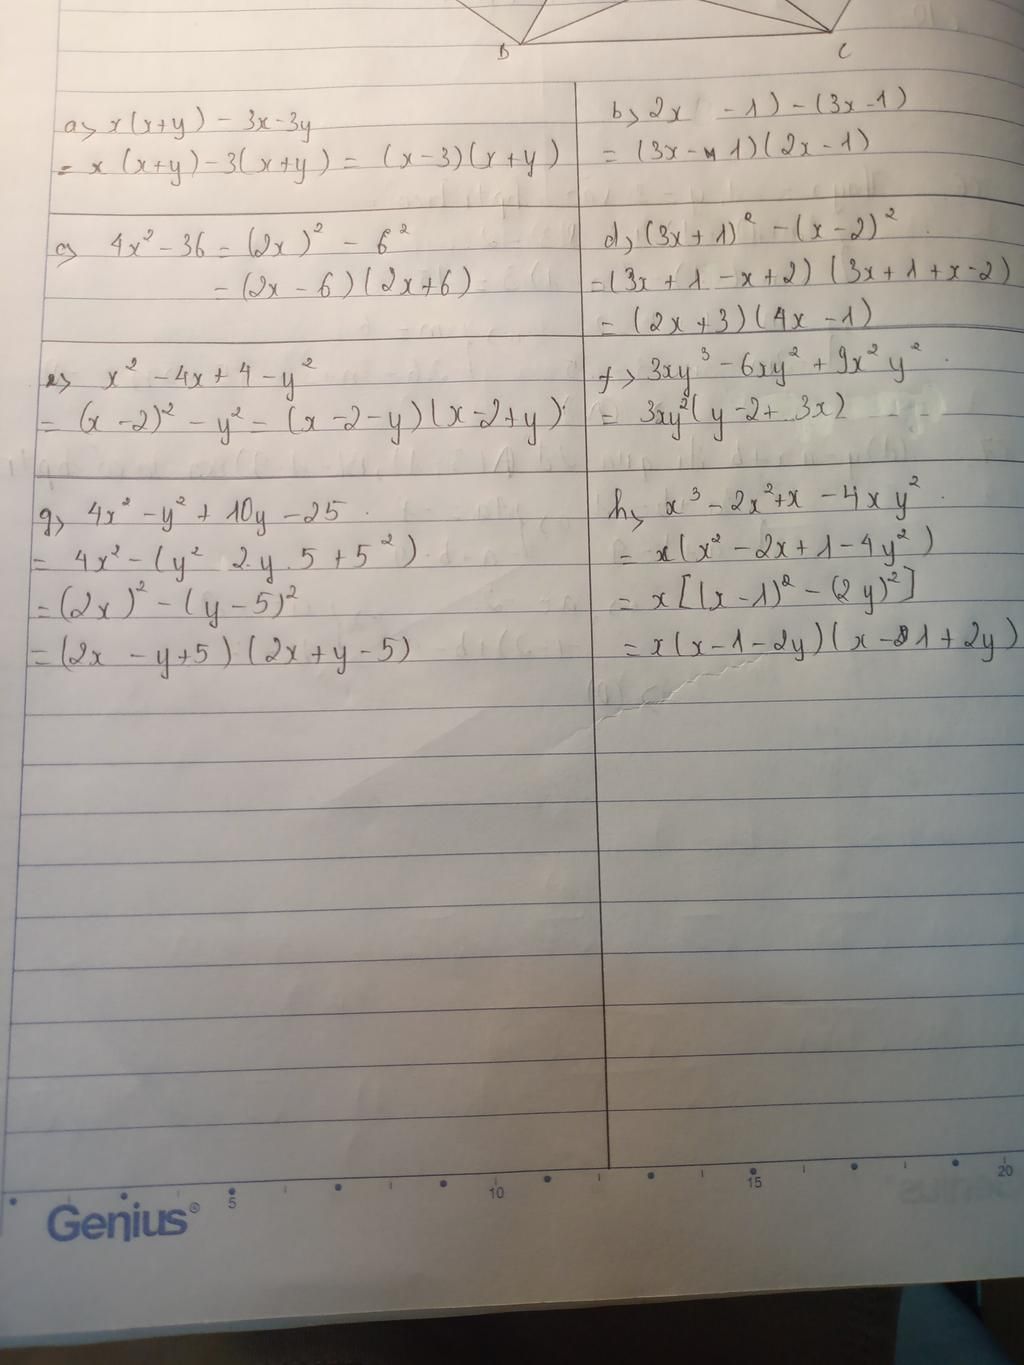 B
C
a, x(x+y) - 3x-3y
= x (x+y) - 3(x+y) = (x-3)(x+y)
b, 2x - 1) - (3x-1)
= (3x - 1)(2x-1)
c, 4x² - 36 = (2x)² - 6²
= (2x - 6)(2x+6)
d, (3x+1)² - (x-2)²
= (3x + 1 - x+2) (3x+1+x-2)
= (2x+3)(4x-1)
e, x² - 4x + 4 - y²
= (x-2)² - y² = (x-2-y)(x-2+y)
f, 3xy³ - 6xy² + 9x²y²
= 3xy²(y-2+ 3x)
g, 4x² - y² + 10y - 25
= 4x² - (y² 2.y.5 + 5²)
= (2x)² - (y-5)²
= (2x - y+5) (2x+y-5)
h, x³ - 2x²+x - 4xy²
= x(x² - 2x + 1 - 4y²)
= x[(x-1)² - (2y)²]
= x(x-1-2y)(x-1+2y)
5 10 15 20
Genius®